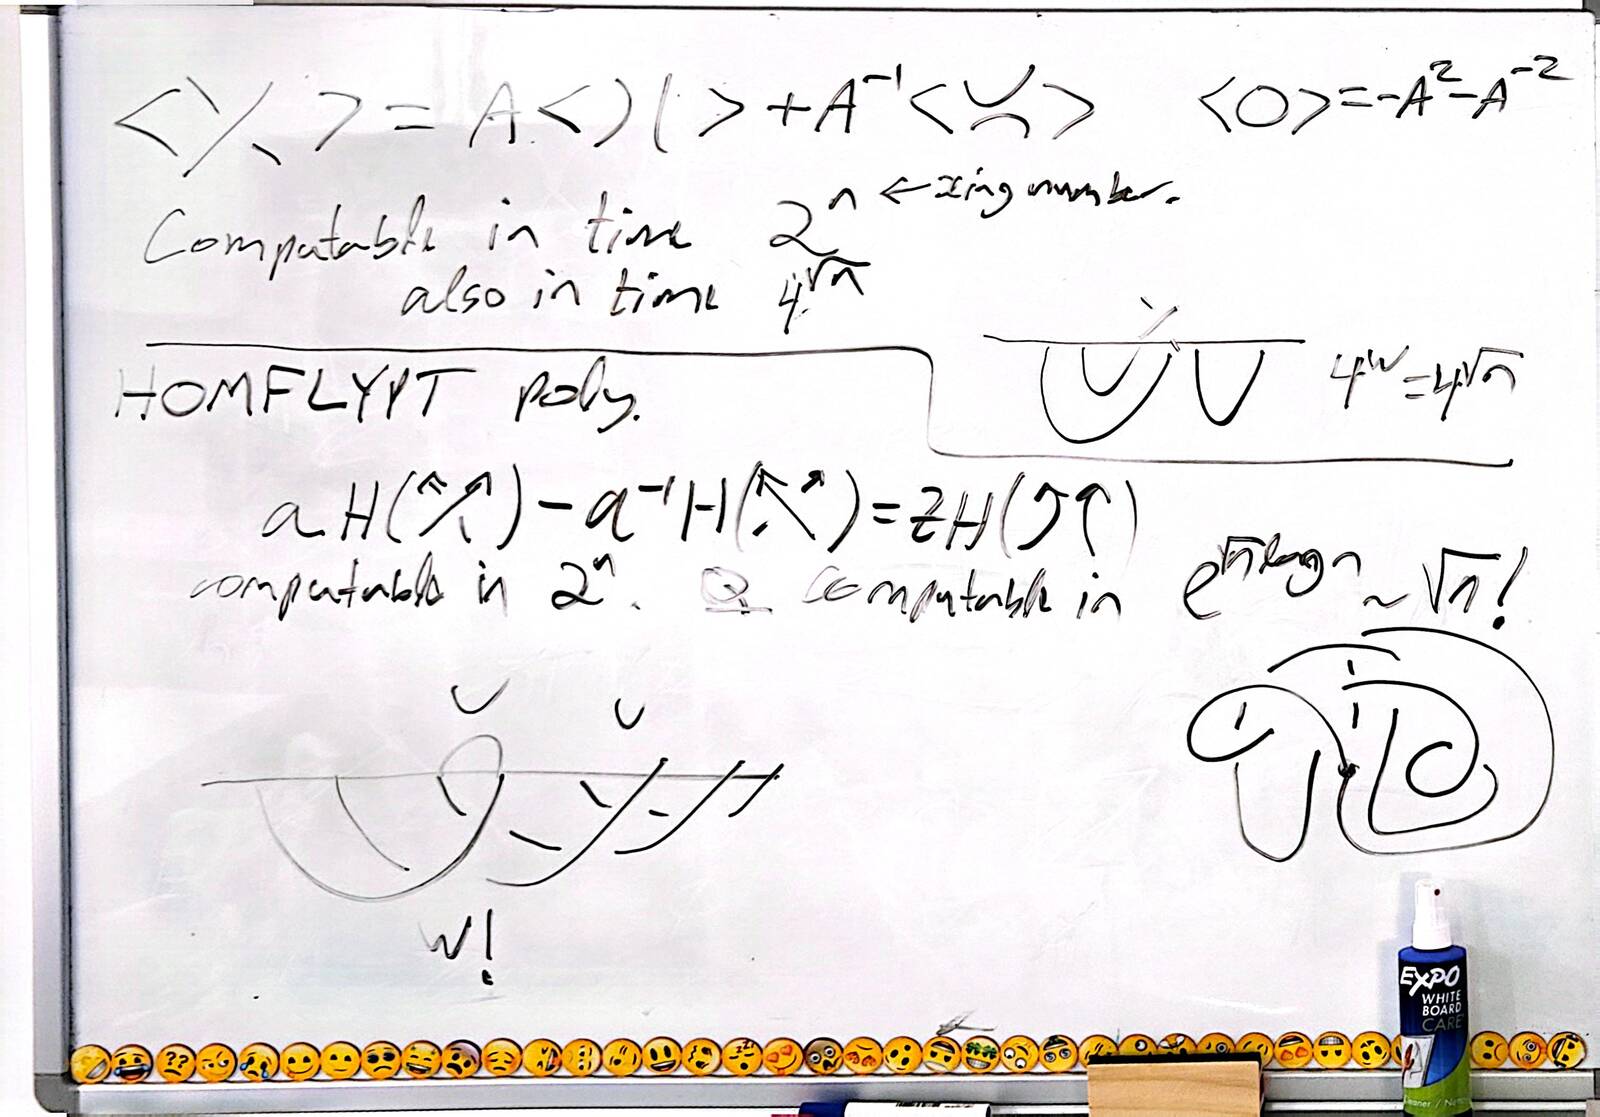 < > = A < ) ( > + A⁻¹ < > <O> = -A² - A⁻²
Computable in time 2ⁿ ← xing number.
also in time 4^√n
4^w = 4^√n
HOMFLYPT poly.
a H( ) - a⁻¹ H( ) = z H( )
computable in 2ⁿ. Q computable in e^√n log n ~ √n!
w!
EXPO
WHITE
BOARD
CARE